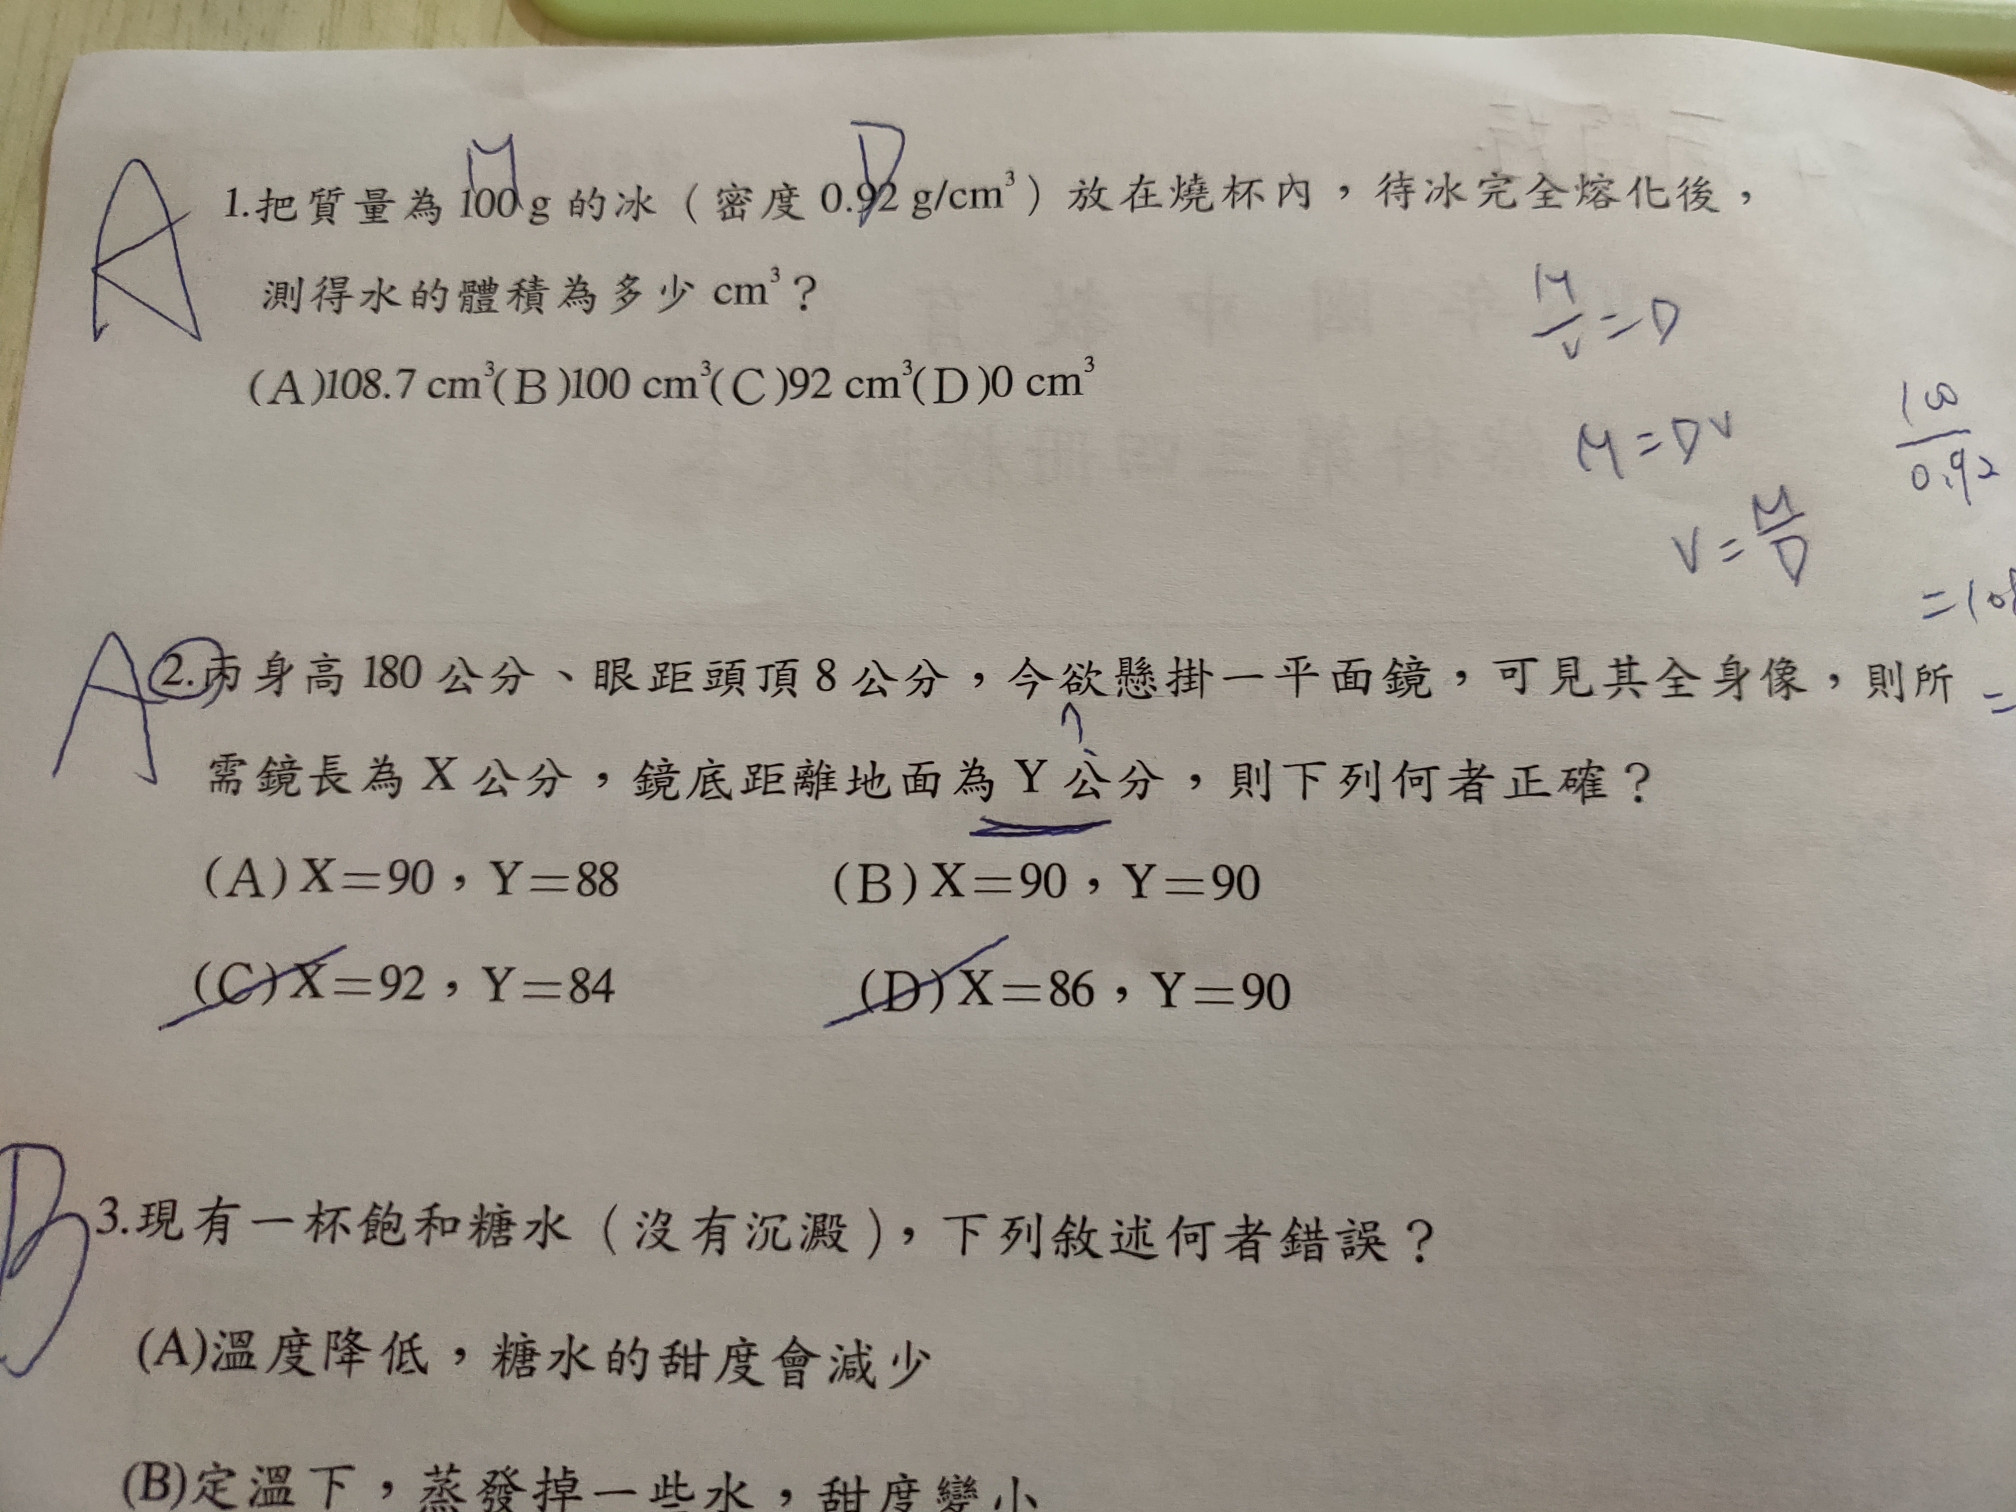 A
M
D
1.把質量為100g的冰（密度0.92 g/cm³）放在燒杯內，待冰完全熔化後，
測得水的體積為多少cm³？
(A)108.7 cm³(B)100 cm³(C)92 cm³(D)0 cm³
M/V=D
M=DV
V=M/D
100/0.92
=108
A
2.丙身高180公分、眼距頭頂8公分，今欲懸掛一平面鏡，可見其全身像，則所
需鏡長為X公分，鏡底距離地面為Y公分，則下列何者正確？
(A)X=90，Y=88
(B)X=90，Y=90
(C)X=92，Y=84
(D)X=86，Y=90
B
3.現有一杯飽和糖水（沒有沉澱），下列敘述何者錯誤？
(A)溫度降低，糖水的甜度會減少
(B)定溫下，蒸發掉一些水，甜度變小